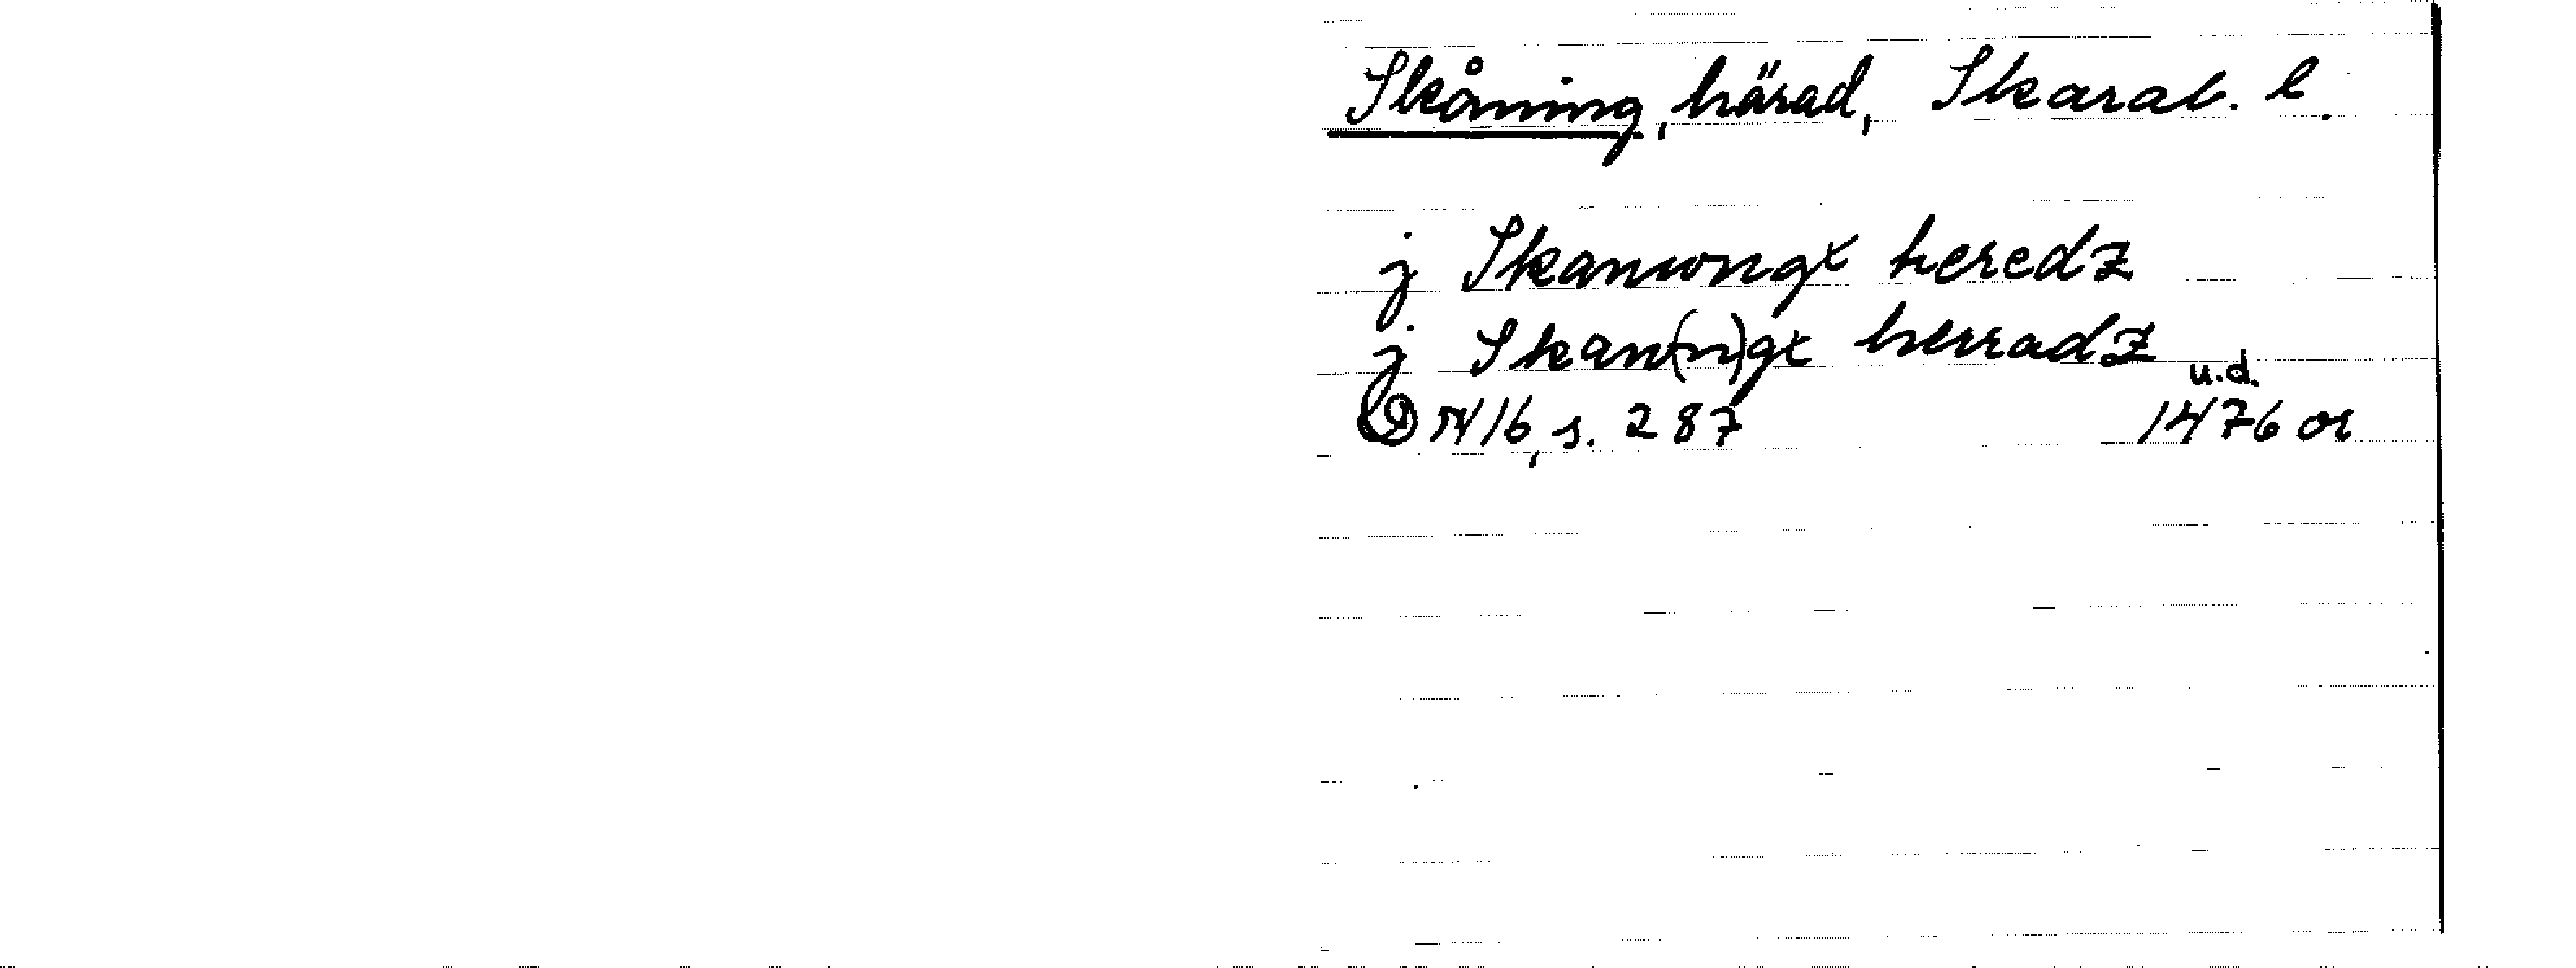 Skåning, härad, Skarab. l.
j Skanungx heredz
j Skan(n)gx herradz
u.d.
s. 287 1476 or